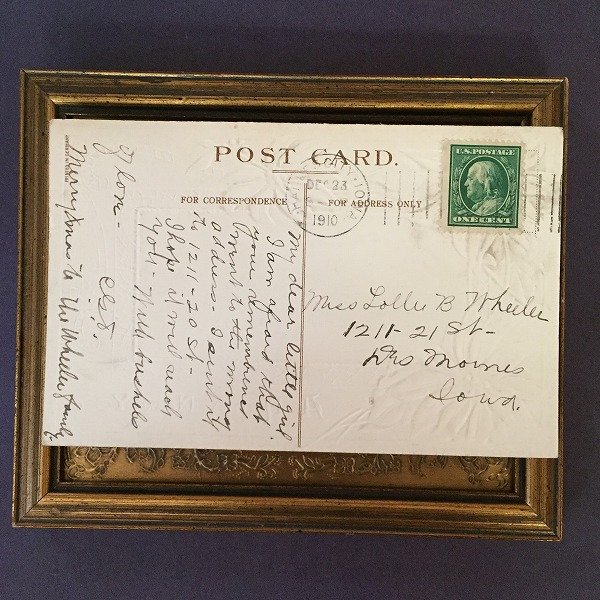 POST CARD.
FOR CORRESPONDENCE
FOR ADDRESS ONLY
DEC 23
1910
U.S. POSTAGE
ONE CENT
Miss Lollie B Wheeler
1211- 21 St-
Des Moines
Iowa.
My dear little girl.
I am afraid that
your remembrance
went to the wrong
address - I sent it
to 1211- 20 St-
I hope it will reach
you - With bushels
of love -
Merry Xmas to the Wheeler family.